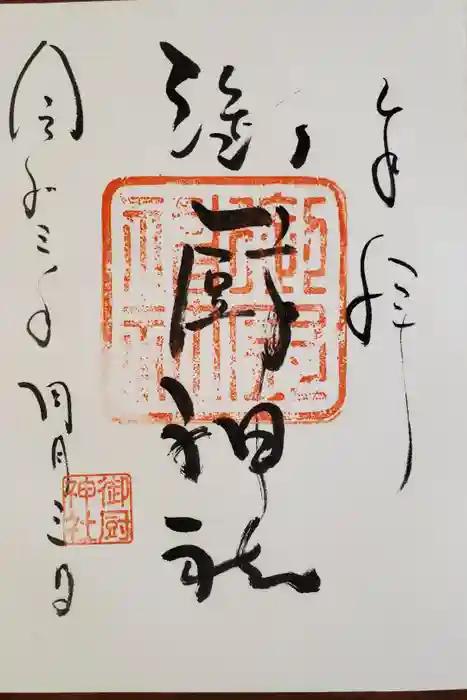 奉拝
御厨神社
令和三年四月三日
御厨
神社